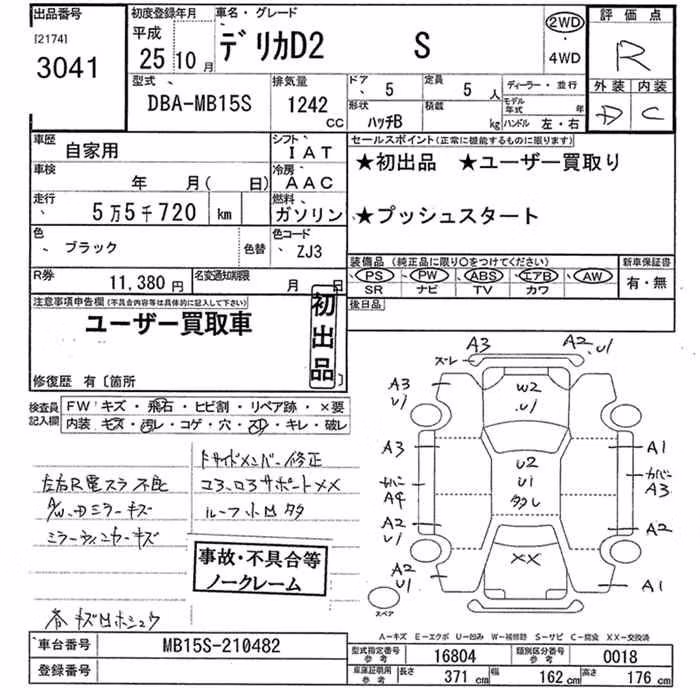 出品番号
[2174]
3041
初度登録年月
平成
25 10 月
車名・グレード
デリカD2 S
2WD
・
4WD
評価点
R
外装 内装
D C
型式
DBA-MB15S
排気量
1242 CC
ドア 5
定員 5 人
形状 ハッチB
積載 kg
ディーラー・並行
モデル年式 年
ハンドル 左・右
車歴 自家用
シフト IAT
車検 年 月( 日)
冷房 AAC
走行 5万5千720 km
燃料 ガソリン
色 ブラック
色替
色コード ZJ3
R券 11,380 円
名変通知期限 月 日
セールスポイント(正常に機能するものに限ります)
★初出品 ★ユーザー買取り
★プッシュスタート
装備品 (純正品に限り○をつけてください)
PS PW ABS エアB AW
SR ナビ TV カワ
新車保証書
有・無
後日品
注意事項申告欄(不具合内容等は具体的に記入して下さい)
ユーザー買取車
初出品
修復歴 有〔箇所
検査員記入欄
FW キズ・飛石・ヒビ割・リペア跡・×要
内装 キズ・汚レ・コゲ・穴・スレ・キレ・破レ
左右R電スラ不良
ミラーウィンカーキズ
コ3、ロ3サポートXX
事故・不具合等
ノークレーム
A3
A2 U1
ズレ
A3 U1
W2
U1
A3
A1
U2
U1
カバーA4
カバーA3
A2 U1
A2
XX
A2 U1
A1
スペア
A―キズ E―エクボ U―凹み W―補修跡 S―サビ C―腐食 XX―交換済
車台番号 MB15S-210482
登録番号
型式指定番号 参考 16804
類別区分番号 参考 0018
車庫証明用 参考 長さ 371 cm 幅 162 cm 高さ 176 cm